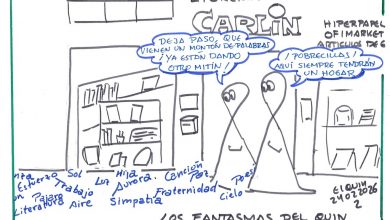 CARLIN
HIPERPAPEL
OFIMARKET
ARTICULOS DE
DEJA PASO, QUE
VIENEN UN MONTÓN DE PALABRAS
¡YA ESTÁN DANDO
OTRO MITIN!
¡POBRECILLAS!
AQUÍ SIEMPRE TENDRÁN
UN HOGAR
Sol Luz Hija Canción Paz Poesí
Esfuerzo Trabajo Aurora Fraternidad Cielo
Pájaro
Literatura Aire Simpatía
ELQUIN
24022026
2
LOS FANTASMAS DEL QUIN